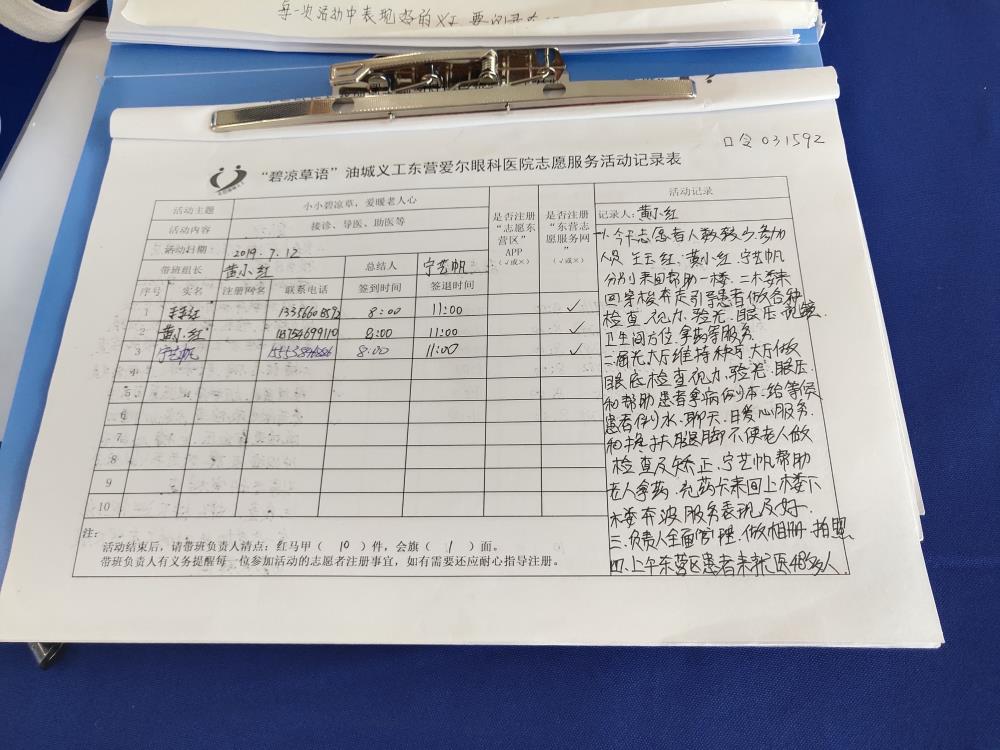 每一次活动中表现好的义工
口令 031592
“碧凉草语”油城义工东营爱尔眼科医院志愿服务活动记录表
活动主题 小小碧凉草，爱暖老人心
活动内容 接诊、导医、助医等
活动日期 2019.7.12
带班组长 黄小红 总结人 宁艺帆
是否注册“志愿东营区”APP（√或×）
是否注册“东营志愿服务网”（√或×）
序号 实名 注册网名 联系电话 签到时间 签退时间
1 王玉红 8:00 11:00 ✓
2 黄小红 8:00 11:00 ✓
3 宁艺帆 8:00 11:00 ✓
4
5
6
7
8
9
10
注：
活动结束后，请带班负责人清点：红马甲（10）件，会旗（1）面。
带班负责人有义务提醒每一位参加活动的志愿者注册事宜，如有需要还应耐心指导注册。
活动记录
记录人：黄小红
一、今天志愿者人数较少，参加
人员 王玉红、黄小红、宁艺帆
分别来回帮助一楼、二楼来
回穿梭奔走引导患者做各种
检查、视力、验光、眼压
卫生间方位、拿药等服务
二、屈光大厅维持秩序，大厅做
眼底检查视力、验光、眼压
和帮助患者拿病例本、给等候
患者倒水、聊天、日爱心服务、
和搀扶腿脚不便老人做
检查及矫正、宁艺帆帮助
老人拿药、允药卡来回上楼下
楼奔波服务表现及好.
三、负责人全面管理、做相册、拍照
四、上午东营区患者来就医